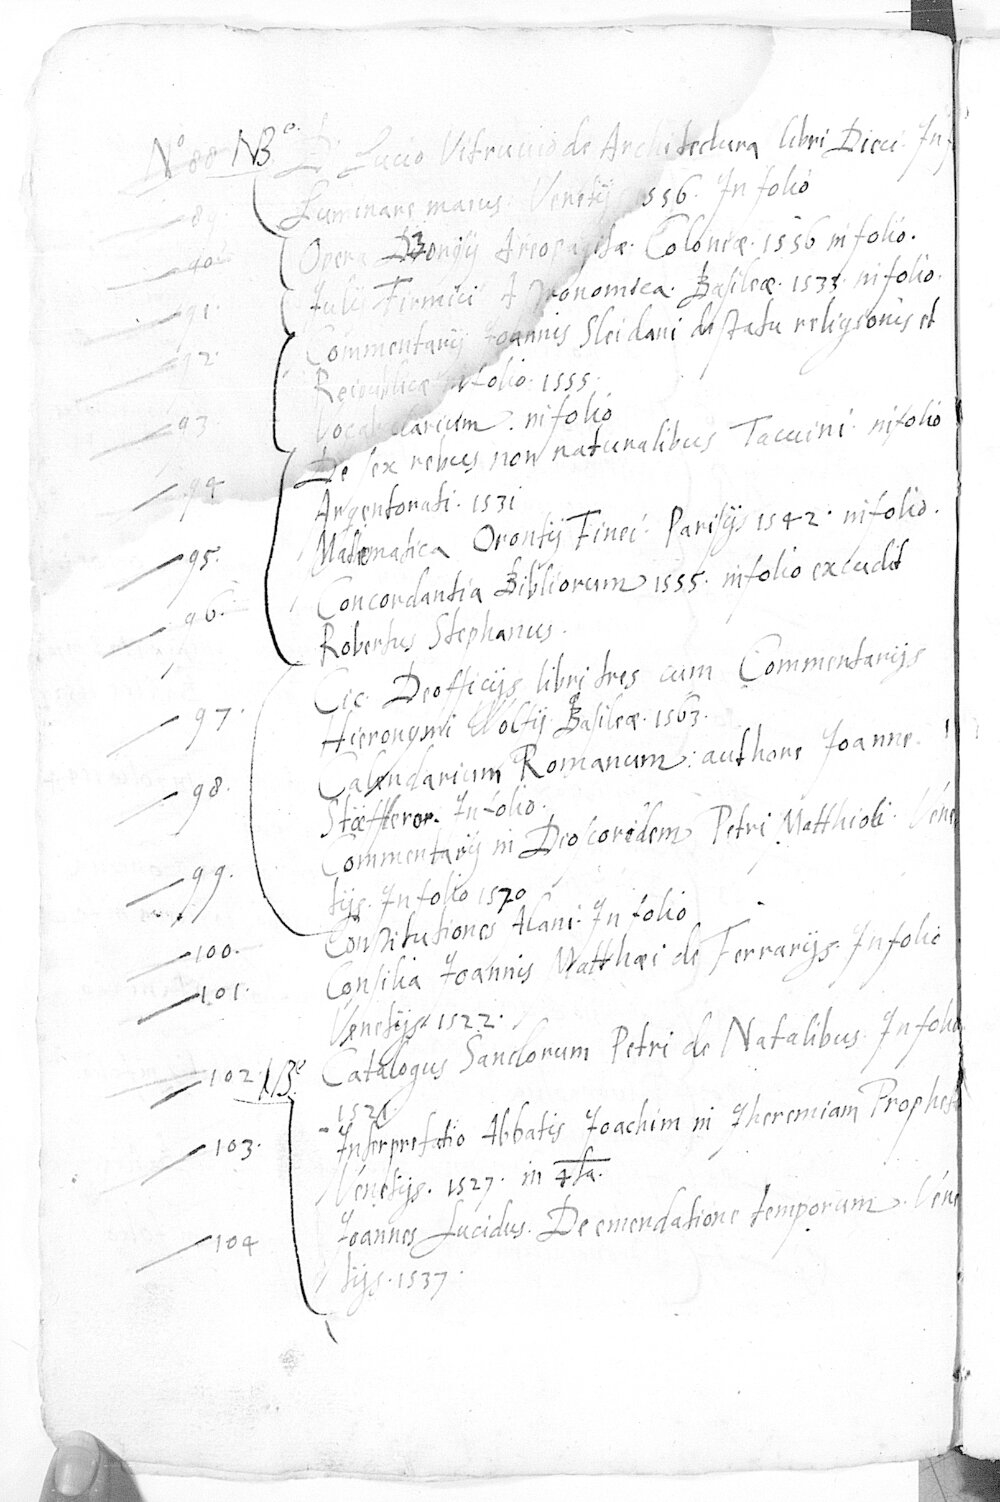 No 88 NBe. Di Lucio Vitruvio de Architectura libri Dieci. In f
89 Luminare maius. Venetijs 1556. In folio
90 Opera Dionisij Areopagitæ. Coloniæ. 1556 in folio.
91. Iulij Firmici Astronomica. Basileæ. 1533. in folio.
92. Commentarij Joannis Sleidani de statu religionis et
Reipublicæ in folio. 1555.
93 Vocabularium. in folio
94 De sex rebus non naturalibus Taccuini. in folio
Argentorati. 1531
95. Matematica Orontij Finei. Parisijs 1542. in folio.
96. Concordantia Bibliorum 1555. in folio excudit
Robertus Stephanus.
97. Cic. De officijs libri tres cum Commentarijs
Hieronymi Wolfij Basileæ. 1563.
98. Calendarium Romanum: authore Joanne.
Stœffleror. In folio.
99. Commentarij in Dioscoridem Petri Matthioli. Vene
tijs. In folio 1570
100. Constitutiones Alani. In folio
101. Consilia Joannis Matthæi de Ferrarijs. In folio
Venetijs. 1522.
102 NBe. Catalogus Sanctorum Petri de Natalibus. In folio
1521
103. Interpretatio Abbatis Joachim in Iheremiam Prophet
Venetijs. 1527. in 4ta.
104 Joannes Lucidus. De emendatione temporum. Vene
tijs. 1537.